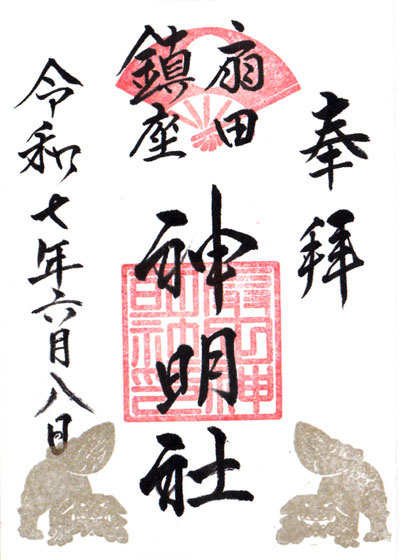 奉拝
扇田
鎮座
神明社
令和七年六月八日